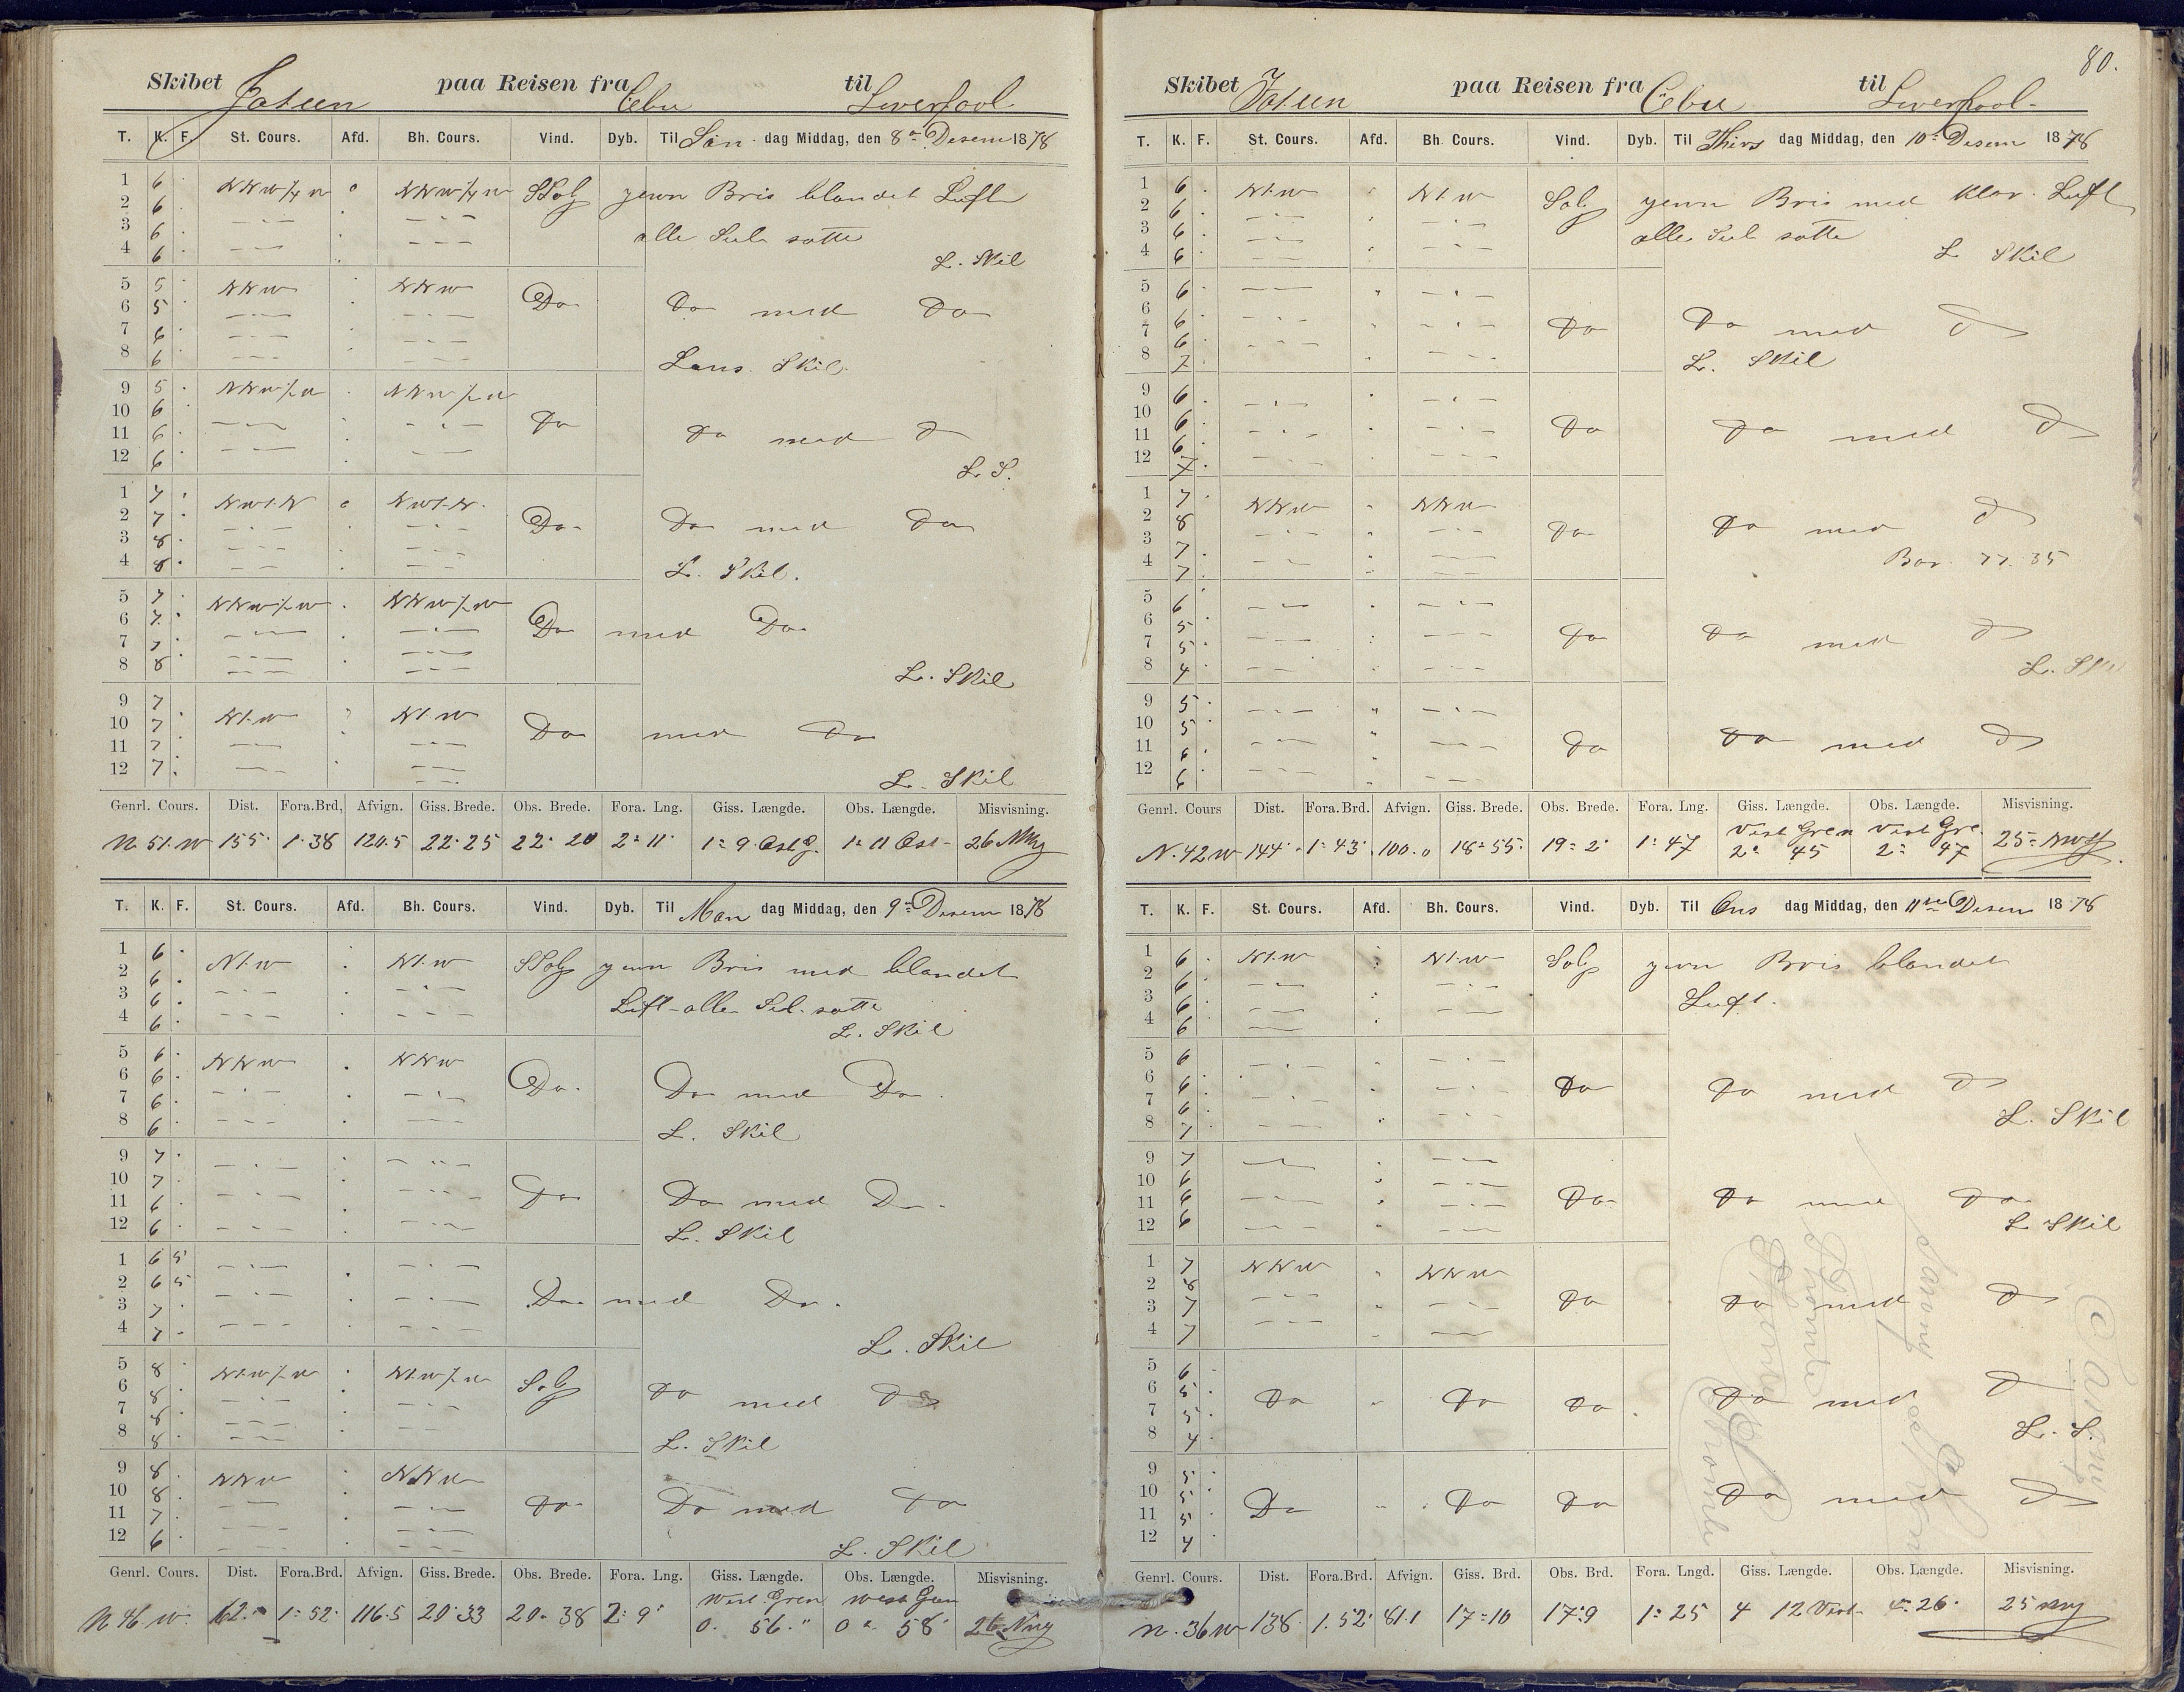 Skibet Jatuen paa Reisen fra Cebu til Liverpool
T. K. F. St. Cours. Afd. Bh. Cours. Vind. Dyb. Til Søn dag Middag, den 8de Desem 1878
1 6 NNW½W NNW½W SSO jevn Bris blandet Luft
2 6
3 6 alle Seil satte
4 6 L. Skil
5 5 NNW NNW Do Do med Do
6 5
7 6
8 6 Lans. Skil.
9 5 NNW½W NNW½W
10 6 Do Do med D
11 6
12 6 L. S.
1 7 NWt.N NWt.N.
2 7 Do Do med Do
3 8
4 8 L. Skil.
5 7 NNW½W NNW½W
6 7 Do med Do
7 7
8 8 L. Skil
9 7
10 7 Nt.W Nt.W Do med Do
11 7
12 7 L. Skil
Genrl. Cours. Dist. Fora.Brd, Afvign. Giss. Brede. Obs. Brede. Fora. Lng. Giss. Længde. Obs. Længde. Misvisning.
N. 51. W 155 1°38 120.5 22°25 22°20 2°11 1°9 Ost G. 1°11 Ost 26
T. K. F. St. Cours. Afd. Bh. Cours. Vind. Dyb. Til Man dag Middag, den 9de Desem 1878
1 6
2 6 Nt.W Nt.W SSO jevn Bris med blandet
3 6 Luft alle Seil satte
4 6 L. Skil
5 6 NNW NNW
6 6 Do. Do med Do
7 6
8 6 L. Skil
9 7
10 7
11 6 Do Do med Do
12 6 L. Skil
1 6 5
2 6 5
3 7 Do med Do
4 7 L. Skil
5 8 Nt.W½W Nt.W½W
6 8 SO Do med Do
7 8
8 8 L. Skil
9 8 NNW NNW
10 8
11 7 Do Do med Do
12 6 L. Skil
Genrl. Cours. Dist. Fora.Brd. Afvign. Giss. Brede. Obs. Brede. Fora. Lng. Giss. Længde. Obs. Længde. Misvisning.
West Gren West Gren
N 46. W 162. 1°52 116.5 20°33 20°38 2°9 0. 56. 0° 58 26
80.
Skibet Jatuen paa Reisen fra Cebu til Liverpool
T. K. F. St. Cours. Afd. Bh. Cours. Vind. Dyb. Til Thirs dag Middag, den 10de Desem 1878
1 6 Nt.W Nt.W SO jevn Bris med klar Luft
2 6
3 6 alle Seil satte
4 6 L Skil
5 6
6 6 Do Do med D
7 6
8 7 L. Skil
9 6
10 6
11 6 Do Do med D
12 7
1 7 NNW NNW
2 8 Do Do med D
3 7
4 7 Bar. 77.35
5 6
6 5
7 5 Do Do med D
8 4 L. Skil
9 5
10 5
11 6 Do Do med D
12 6
Genrl. Cours Dist. Fora.Brd. Afvign. Giss. Brede. Obs. Brede. Fora. Lng. Giss. Længde. Obs. Længde. Misvisning.
Vest Gren Vest Gre.
N. 42 W 144 1°43 100.0 18°55 19°2 1°47 2° 45 2° 47 25°
T. K. F. St. Cours. Afd. Bh. Cours. Vind. Dyb. Til Ons dag Middag, den 11te Desem 1878
1 6 Nt.W Nt.W SO jevn Bris blandet
2 6
3 6 Luft.
4 6
5 6
6 6 Do Do med D
7 6
8 7 L. Skil
9 7
10 6
11 6 Do Do med Do
12 6 L Skil
1 7 NNW NNW
2 8
3 7 Do Do med D
4 7
5 6
6 5 Do Do Do Do med D
7 5
8 4 L. S.
9 5
10 5
11 5 Do Do Do Do med D
12 4
Genrl. Cours. Dist. Fora.Brd. Afvign. Giss. Brd. Obs. Brd. Fora. Lngd. Giss. Længde. Obs. Længde. Misvisning.
N. 36 W 138 1.52 81.1 17°10 17°9 1°25 4 12 Vest 4°26 25